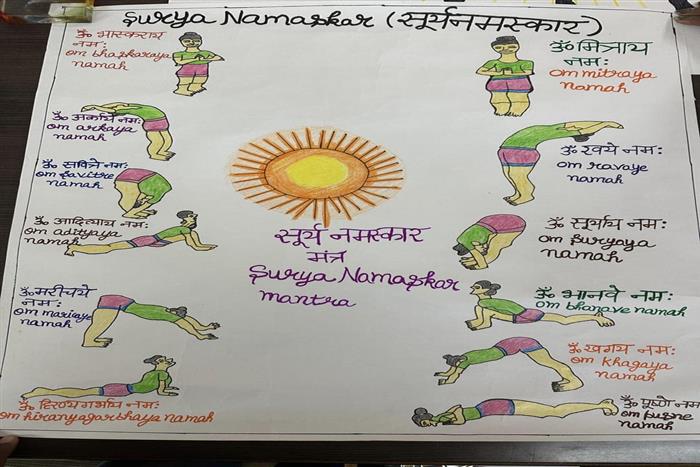 Surya Namaskar (सूर्यनमस्कार)
ॐ भास्कराय
नम:
om bhaskaraya
namah
ॐ अर्काय नम:
om arkaya
namah
ॐ सवित्रे नम:
om savitre
namah
ॐ आदित्याय नम:
om adityaya
namah
ॐ मरीचये
नम:
om mariaye
namah
ॐ हिरण्य गर्भाय नम:
om hiranyagarbhaya namah
सूर्य नमस्कार
मंत्र
Surya Namaskar
mantra
ॐ मित्राय
नम:
om mitraya
namah
ॐ रवये नम:
om ravaye
namah
ॐ सूर्याय नम:
om suryaya
namah
ॐ भानवे नम:
om bhanave namah
ॐ खगय नम:
om khagaya
namah
ॐ पूष्णे नम
om pusne
namah